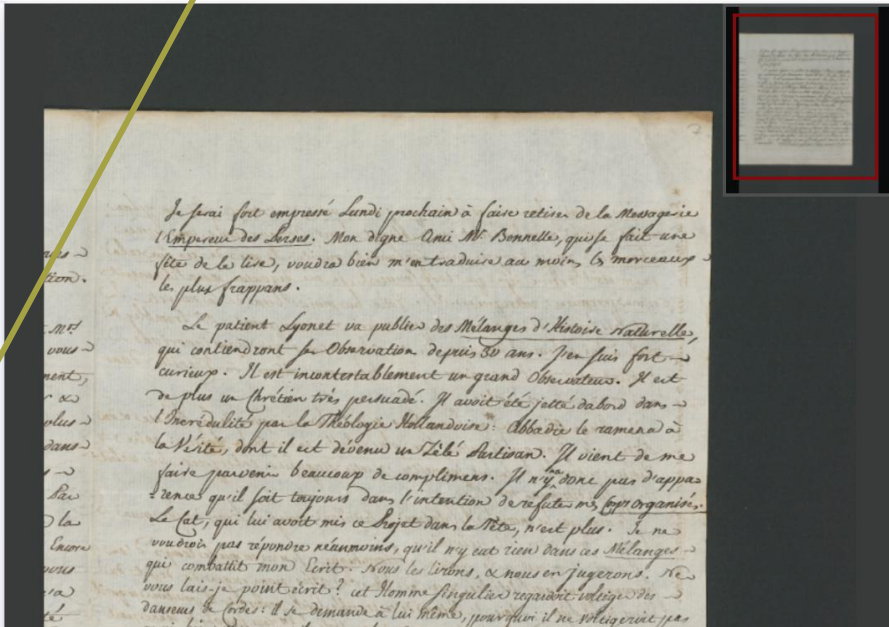 Je serai fort empressé Lundi prochain à faire retirer de la Messagerie
l'Empereur des Perses. Mon digne Ami Mr. Bonnelle, qui se fait une
fête de le lire, voudra bien m'en traduire au moins les morceaux
les plus frappans.
Le patient Lyonet va publier des Mélanges d'Histoire Naturelle,
qui contiendront ses Observations depuis 30 ans. J'en suis fort
curieux. Il est incontestablement un grand Observateur. Il est
de plus un Chrétien très persuadé. Il avoit été jetté dabord dans
l'Incrédulité par la Théologie Hollandoise: Abbadie le ramena à
la Vérité, dont il est dévenu un Zèlé Partisan. Il vient de me
faire parvenir beaucoup de complimens. Il n'y a donc pas d'appa
rence qu'il soit toujours dans l'intention de refuter mes Corps organisés.
Le Cat, qui lui avoit mis ce Projet dans la Tête, n'est plus. Je ne
voudrois pas répondre néanmoins, qu'il n'y eut rien dans ces Mélanges
qui combattit mon Ecrit. Nous les lirons, & nous en jugerons. Ne
vous l'ai-je point écrit? cet Homme singulier regardoit voltiger des
danseurs de Cordes: il se demande à lui même, pourquoi il ne voltigeroit pas
tion.
Mrs
vous
ment,
&
plus
dans
Par
la
Encore
vous
té